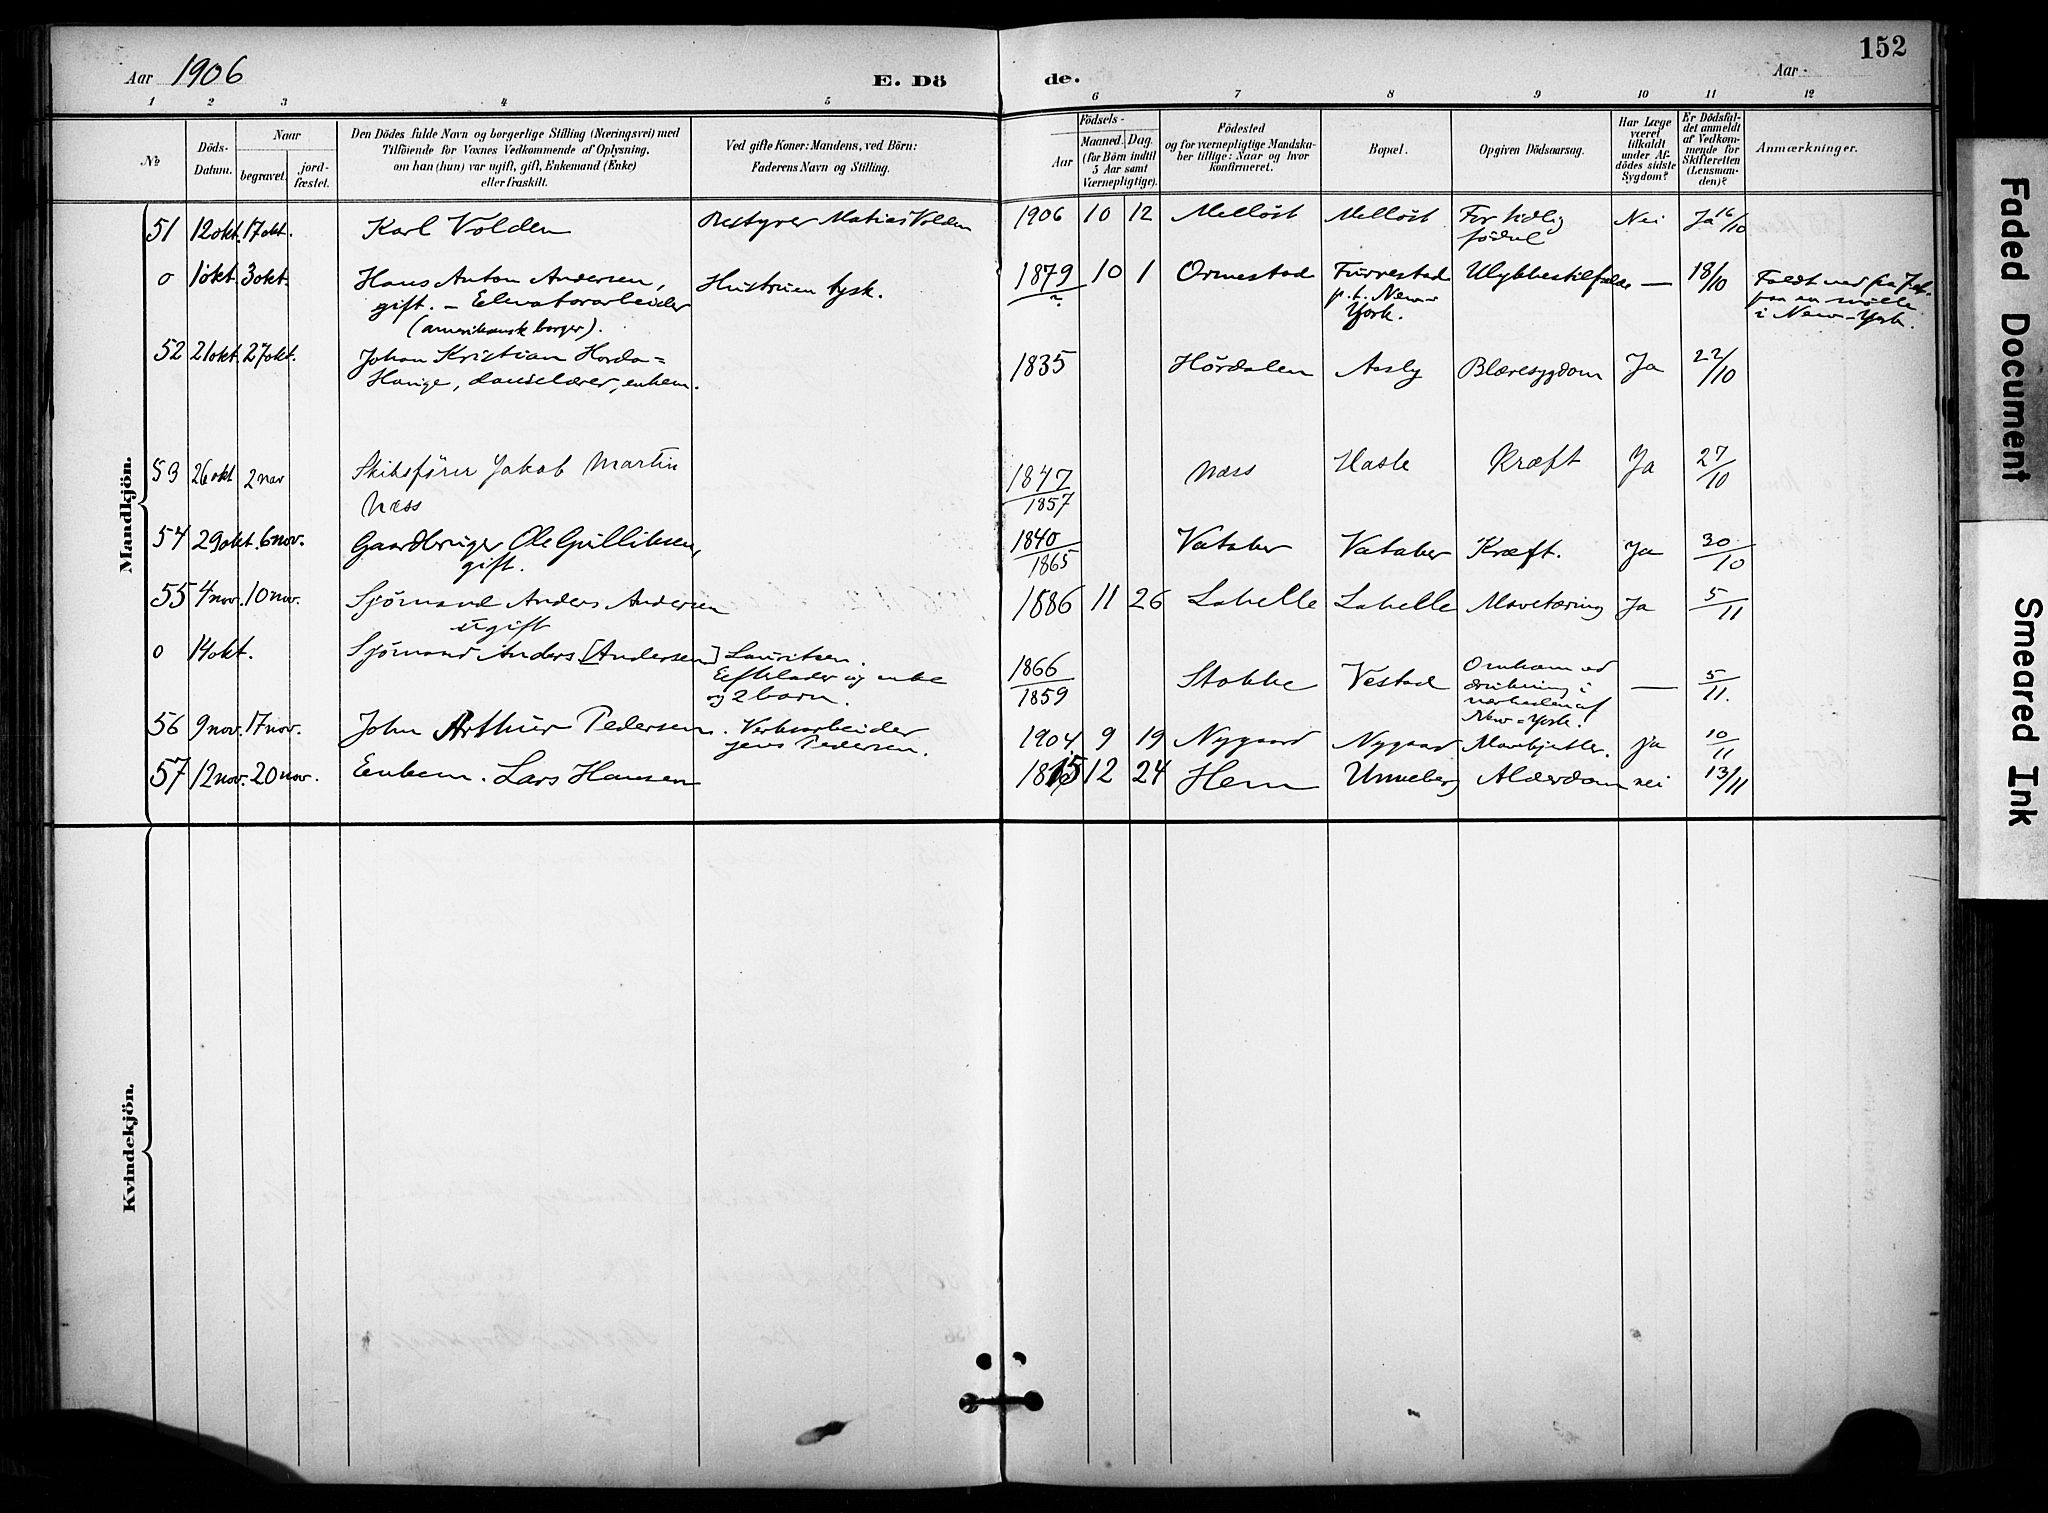 Aar 1906
E. Dö
de.
Aar
152
1 2 3 4 5 6 7 8 9 10 11 12
No
Döds-
Datum.
Naar
begravet.
jord-
fæstet.
Den Dödes fulde Navn og borgerlige Stilling (Næringsvei) med
Tilföiende for Voxnes Vedkommende af Oplysning,
om han (hun) var ugift, gift, Enkemand (Enke)
eller fraskilt.
Ved gifte Koner: Mandens, ved Börn:
Faderens Navn og Stilling.
Födsels-
Aar
Maaned.
Dag.
(for Börn indtil
5 Aar samt
Værnepligtige).
Födested
og for værnepligtige Mandska-
ber tillige: Naar og hvor
konfirmeret.
Bopæl.
Opgiven Dödsaarsag.
Har Læge
været
tilkaldt
under Af-
dödes sidste
Sygdom?
Er Dödsfal-
det anmeldt
af Vedkom-
mende for
Skifteretten
(Lensman-
den)?
Anmærkninger.
Mandkjön.
51 12 okt. 17 okt. Karl Volden Bestyrer Matias Volden 1906 10 12 Melløst Melløst For tidlig Nei Ja 16/10
født
0 1 okt. 3 okt. Hans Anton Andersen, Hustruen tysk. 1879 10 1 Ormestad Furrestad Ulykkestilfælde — 18/10 Faldt ned fra
gift. – Elevatorarbeider ? p.t. New- paa en mølle
(amerikansk borger). York. i New-York.
52 21 okt. 27 okt. Johan Kristian Horda= 1835 Hørdalen Aasly Blæresygdom Ja 22/10
Hauge, danselærer, enkem.
53 26 okt 2 nov Skibsfører Jakob Martin 1847 Næss Hasle Kræft Ja 27/10
Næss 1857
54 29 okt. 6 nov. Gaardbruger Ole Gulliksen, 1840 Kræft. Ja 30/10
gift. 1865
55 4 nov. 10 nov. Sjømand Anders Andersen 1886 11 26 Labelle Labelle Mavetæring Ja 5/11
ugift
0 14 okt. Sjømand Anders [Andersen] Lauritsen. 1866 Stokke Vestad Omkom ved — 5/11.
Efterlader sig enke 1859 drukning i
og 2 barn. nærheden af
New-York.
56 9 nov. 17 nov. John Arthur Pedersen. Verksarbeider 1904 9 19 Nygaard Nygaard ja 10/11
Jens Pedersen.
57 12 nov. 20 nov. Enkem. Lars Hansen 1815 12 24 Hem Unneberg Alderdom nei 13/11
Kvindekjön.
Faded Document
Smeared Ink